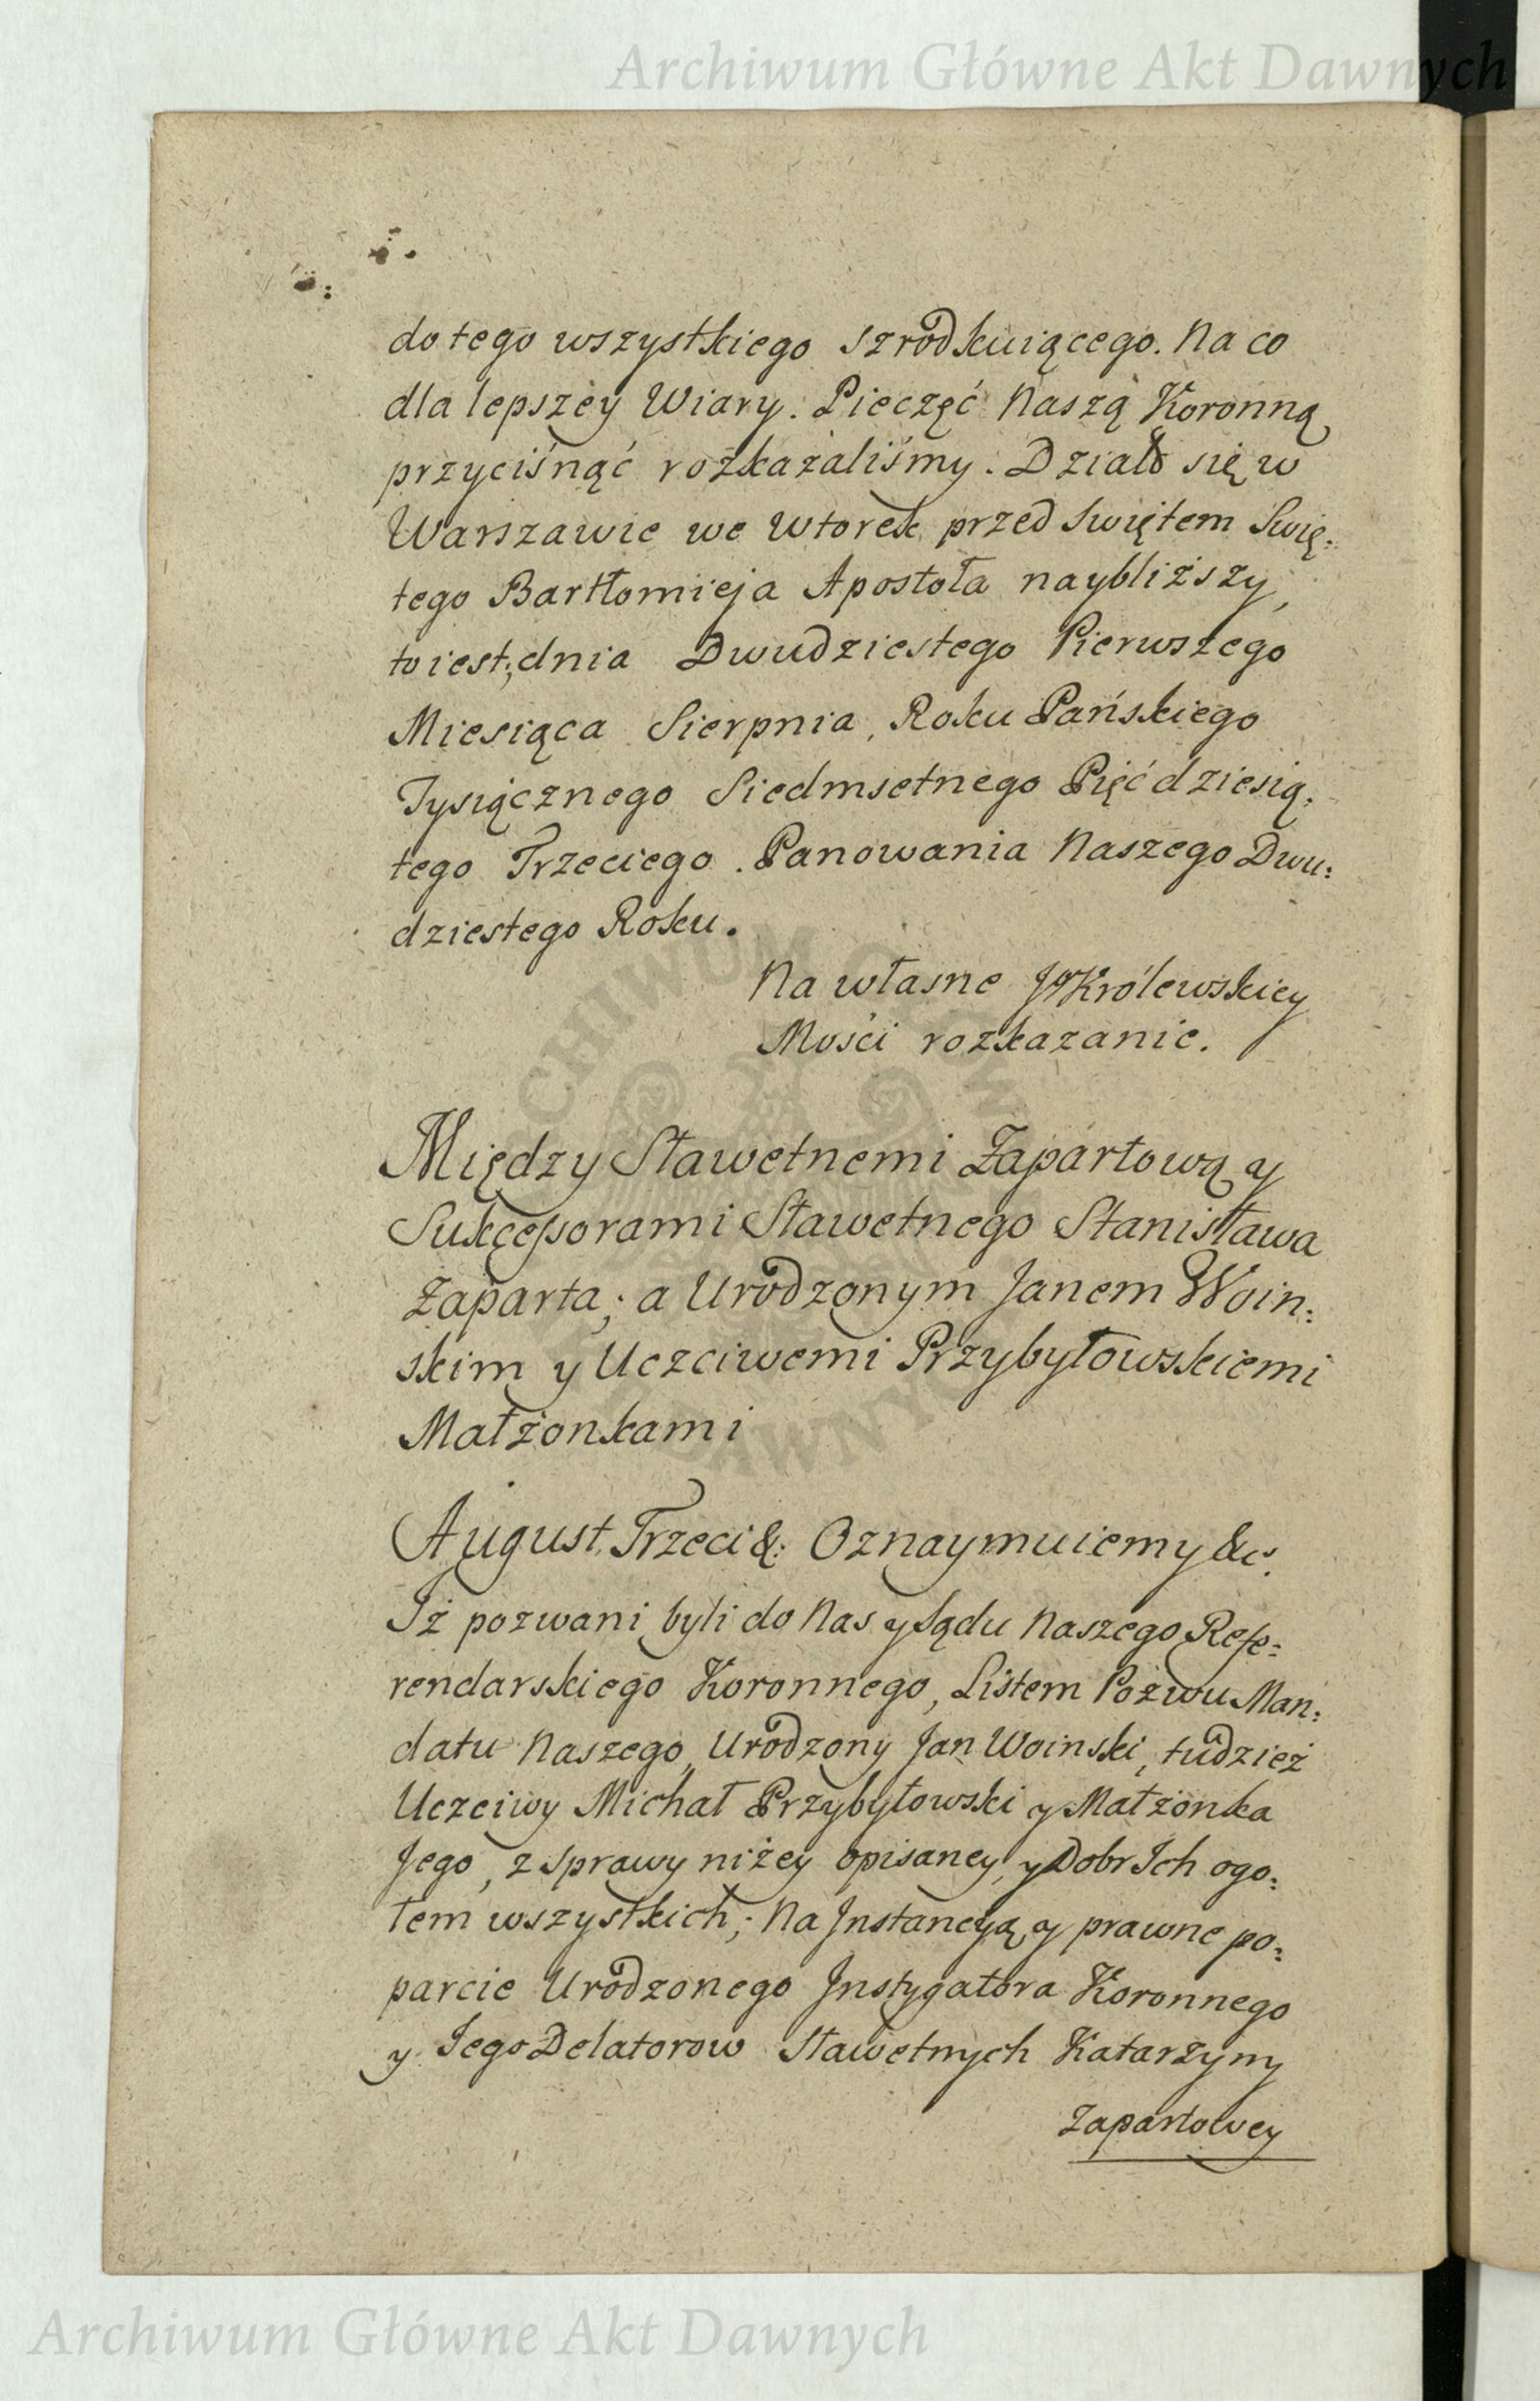 Archiwum Główne Akt Dawnych
do tego wszystkiego szrodkuiącego. Na co
dla lepszey Wiary. Pieczęć Naszą Koronną
przyciśnąć rozkazaliśmy. Działo się w
Warszawie we Wtorek przed Swiętem Swię:
tego Bartłomieja Apostoła naybliższy,
to iest; dnia Dwudziestego Pierwszego
Miesiąca Sierpnia, Roku Pańskiego
Tysiącznego Siedmsetnego Pięćdziesią:
tego Trzeciego. Panowania Naszego Dwu:
dziestego Roku.
Na własne JgoKrólewskiey
Mości rozkazanie.
Między Sławetnemi Zapartową y
Sukcessorami Sławetnego Stanisława
Zaparta; a Urodzonym Janem Woin:
skim y Uczciwemi Przybyłowskiemi
Małżonkami
August Trzeci &: Oznaymuiemy &c.
Iż pozwani byli do Nas y Sądu Naszego Refe:
rendarskiego Koronnego, Listem Pozwu Man:
datu Naszego, Urodzony Jan Woinski, tudzież
Uczciwy Michał Przybyłowski y Małżonka
Jego, z sprawy niżey opisaney, y Dobr Ich ogo:
łem wszystkich; Na Jnstancyą y prawne po:
parcie Urodzonego Jnstygatora Koronnego
y Iego Delatorow Sławetnych Katarzyny
Zapartowey
Archiwum Główne Akt Dawnych